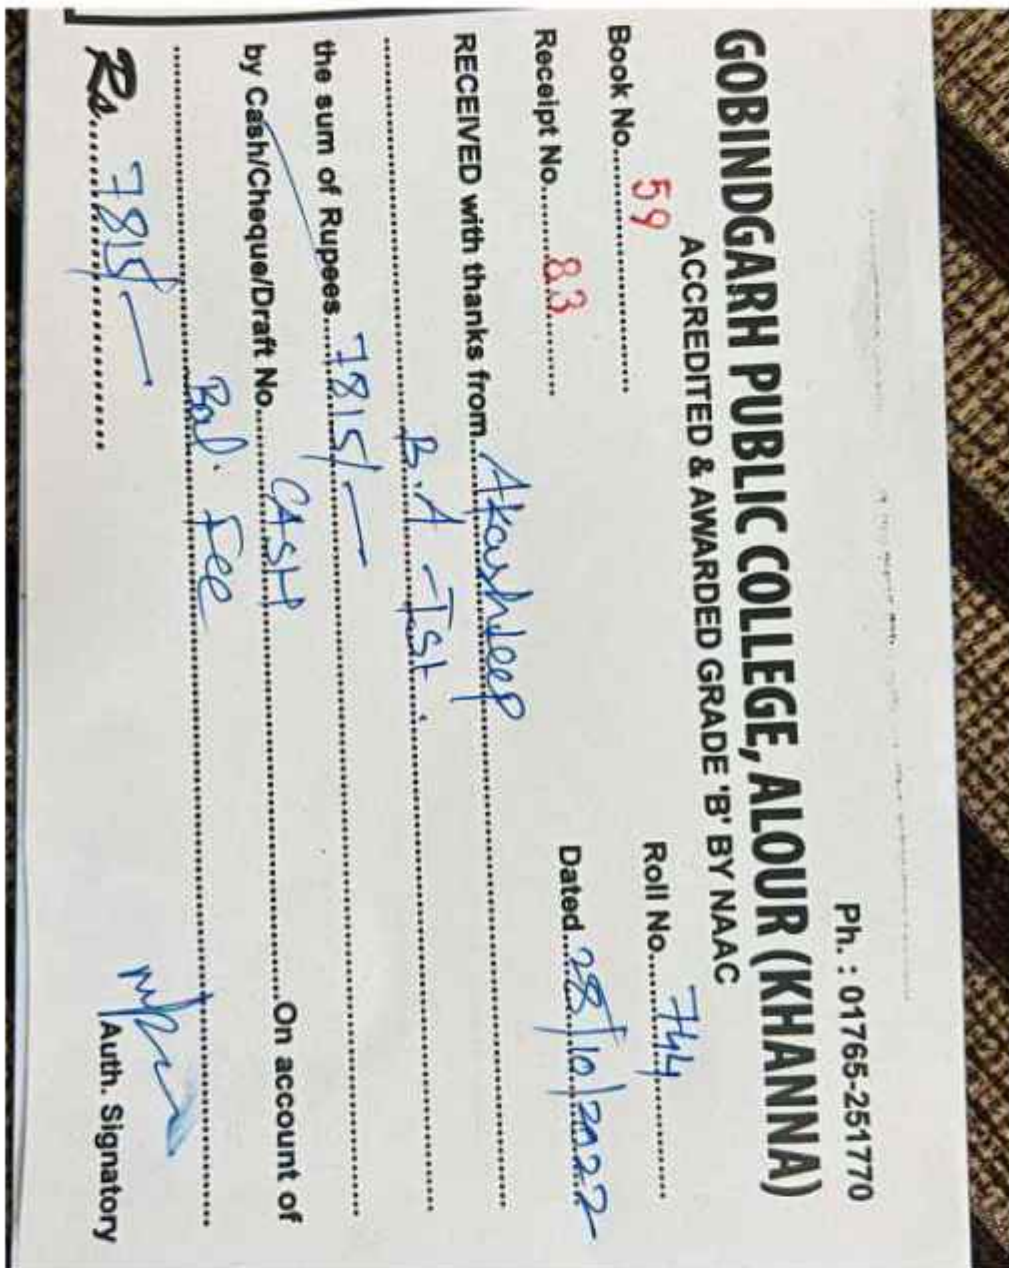 Ph. : 01765-251770
GOBINDGARH PUBLIC COLLEGE, ALOUR (KHANNA)
ACCREDITED & AWARDED GRADE 'B' BY NAAC
Book No. 59 Roll No. 744
Receipt No. 83 Dated 28/10/2022
RECEIVED with thanks from Akashdeep
B.A -Ist.
the sum of Rupees 7815/-
by Cash/Cheque/Draft No. CASH On account of
Bal. Fee
Rs. 7815/- Auth. Signatory